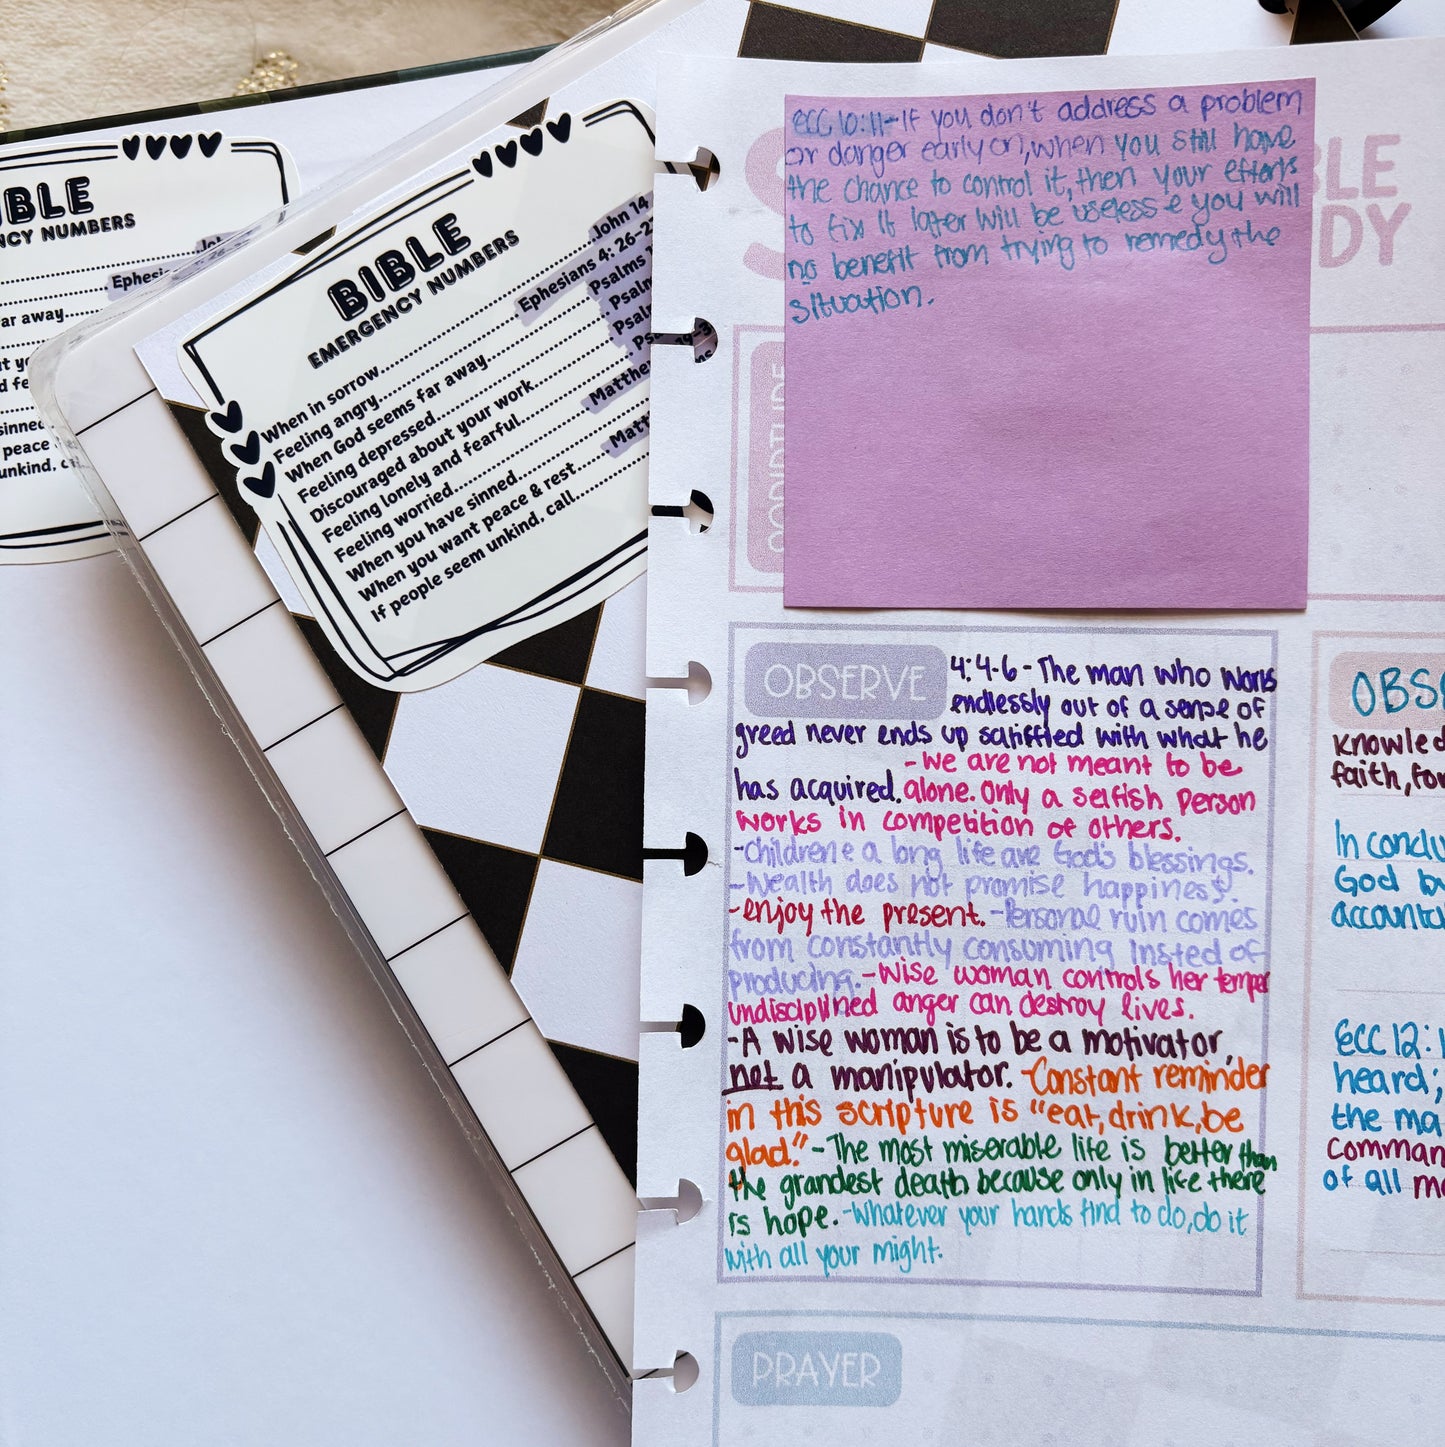 BLE
NCY NUMBERS
Ephesi
ar away
sinned
peace
unkind, c
BIBLE
EMERGENCY NUMBERS
When in sorrow..........John 14
Feeling angry..........Ephesians 4: 26-2
When God seems far away..........Psalms 1
Feeling depressed..........Psal
Discouraged about your work..........Psal
Feeling lonely and fearful..........Ps
Feeling worried..........Matthe
When you have sinned
When you want peace & rest..........Matt
If people seem unkind, call
S
BLE
DY
ECC 10:11-If you don't address a problem
or danger early on, when you still have
the chance to control it, then your efforts
to fix it later will be useless & you will
no benefit from trying to remedy the
situation.
OBSERVE
4:4-6-The man who works
endlessly out of a sense of
greed never ends up satiffied with what he
has acquired. -We are not meant to be
alone. Only a selfish person
works in competition of others.
-Children & a long life are God's blessings.
-Wealth does not promise happiness.
-enjoy the present. -Personal ruin comes
from constantly consuming insted of
producing. -Wise woman controls her temper
undisciplined anger can destroy lives.
-A wise woman is to be a motivator,
not a manipulator. -Constant reminder
in this scripture is "eat, drink, be
glad." -The most miserable life is better than
the grandest death because only in life there
is hope. -Whatever your hands find to do, do it
with all your might.
PRAYER
OBS
Knowled
faith, fo
In conclu
God bu
accounta
ECC 12:1
heard;
the ma
comman
of all m